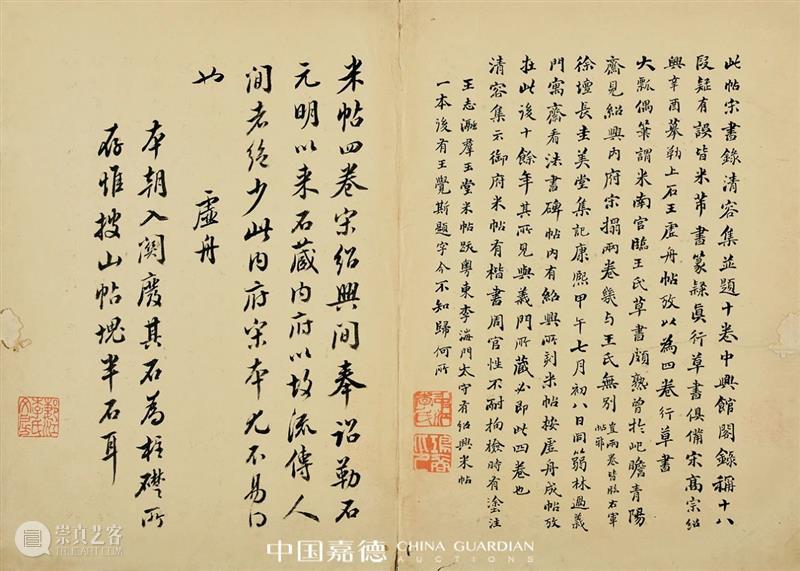 此帖宋書錄清容集並題十卷中興館閣錄稱十八
段疑有誤皆米芾書篆隸真行草書俱備宋高宗紹
興辛酉摹勒上石王虛舟帖攷以為四卷行草書
大瓢偶筆謂米南宮臨王氏草書頗熟曾於屺瞻青陽
齋見紹興內府宋搨兩卷幾与王氏無別 直兩卷皆臨右軍帖耶
徐壇長圭美堂集記康熙甲午七月初八日同蒻林過義
門寓齋看法書碑帖內有紹興所刻米帖按虛舟成帖攷
在此後十餘年其所見與義門所藏必即此四卷也
清容集示御府米帖有楷書周官性不耐拘撿時有塗注
王志瀜羣玉堂米帖跋粵東李海門太守有紹興米帖
一本後有王覺斯題字今不知歸何所
米帖四卷宋紹興間奉詔勒石
元明以来石藏内府以故流傳人
間者絶少此内府宋本尤不易得
也 虛舟
本朝入関廢其石為柱礎所
存惟搜山帖塊半石耳
中国嘉德 CHINA GUARDIAN
AUCTIONS
崇真艺客